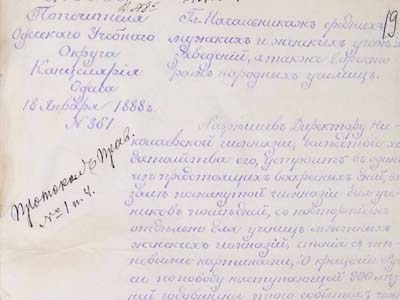 19
Попечитель
Одесскаго Учебнаго
Округа
Канцелярія
Одесса
18 Января 1888 г.
№ 361
Гг. Начальникамъ среднихъ
мужскихъ и женскихъ учебн
заведеній, а также Директо
рамъ народныхъ училищъ.
Протоколъ Прав.
№ 1 п. 4.
Разрѣшивъ Директору Ни
колаевской гимназіи, вслѣдствіе хо
датайства его, устроить въ одинъ
изъ предстоящихъ воскресныхъ дней, въ
залѣ помянутой гимназіи для уче
никовъ послѣдней, съ повтореніемъ
отдѣльно для ученицъ мѣстныхъ
женскихъ гимназій, чтенія съ ту
выми картинами, "О крещеніи Ру
си" по поводу наступающей 900 лѣт
ней годовщины этого событія,